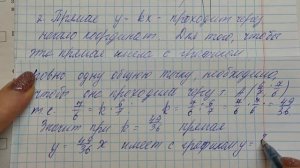 2. Прямая y = kx - проходит через
начало координат. Для того, чтобы
эта прямая имела с графиком
ровно одну общую точку, необходимо,
чтобы она проходила через т. A (6/7; 7/6)
т.е. 7/6 = k · 6/7 k = 7/6 : 6/7 = 7/6 · 7/6 = 49/36
Значит при k = 49/36 прямая
y = 49/36 x имеет с графиком y =